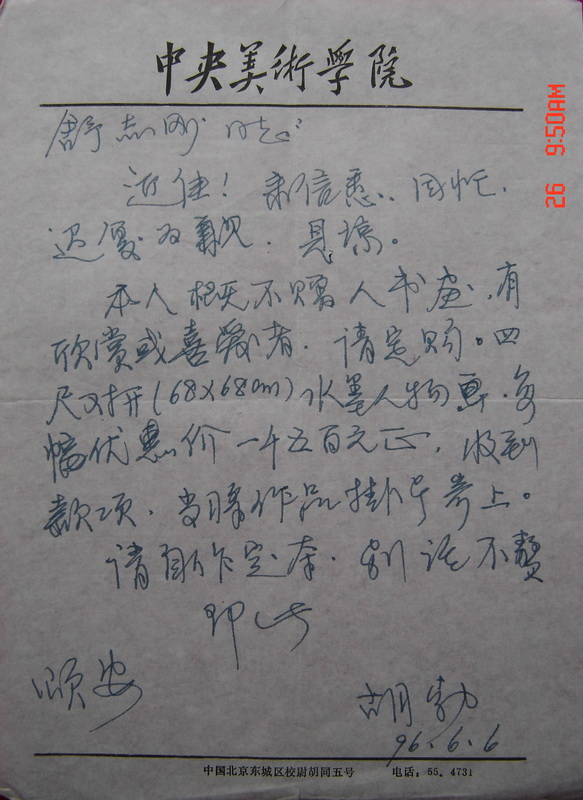 中央美術学院
舒志刚同志
近佳！来信悉，因忙，
迟复为歉，见谅。
本人概不赐人书画，有
欣赏或喜爱者，请定购。四
尺对开（68X68cm）水墨人物画，每
幅优惠价一千五百元正，收到
款项，当将作品挂号寄上。
请自作定夺，别话不赘
即此
颂安
胡勃
96.6.6
中国北京东城区校尉胡同五号 电话：55.4731
26 9:50AM